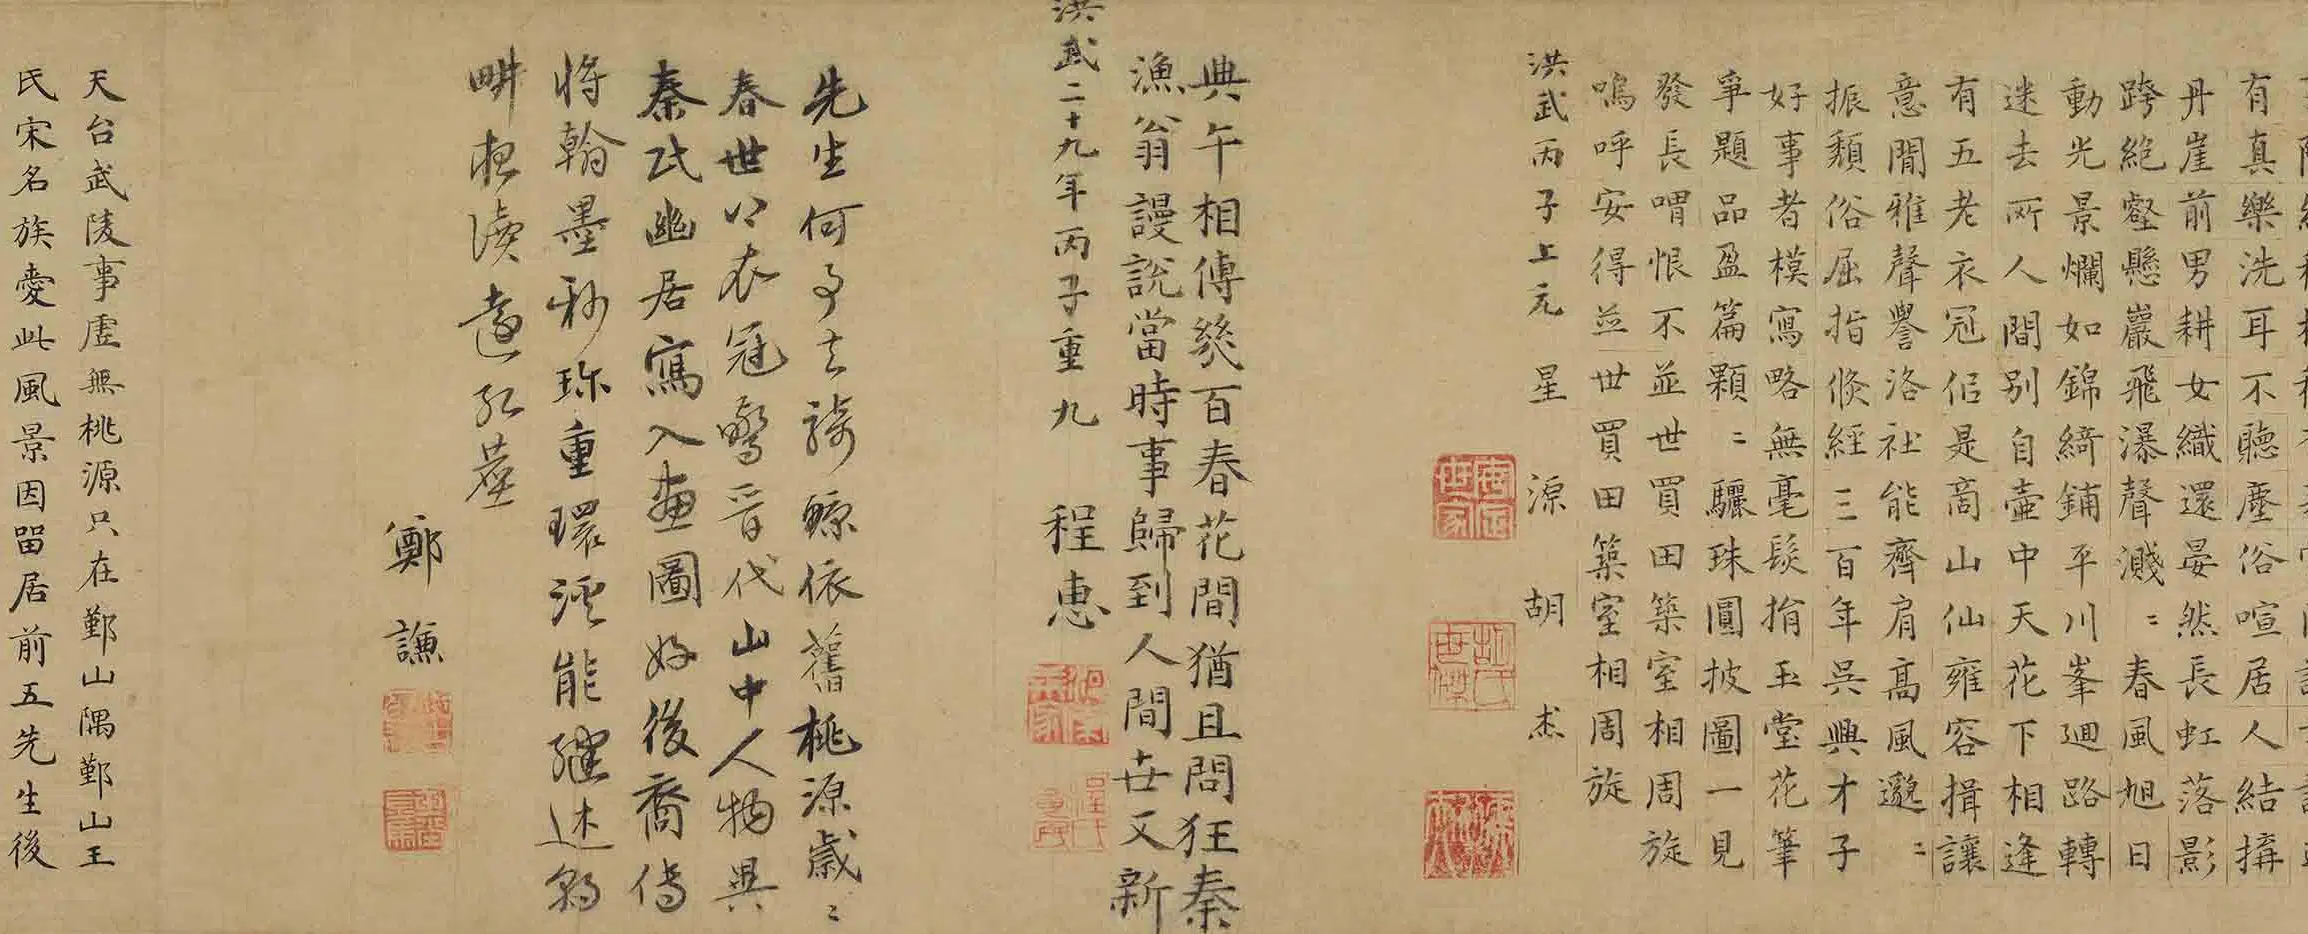 有真樂洗耳不聽塵俗喧居人結搆
丹崖前男耕女織還晏然長虹落影
跨絶壑懸巖飛瀑聲濺〻春風旭日
動光景爛如錦綺鋪平川峯迴路轉
迷去所人間别自壷中天花下相逢
有五老衣冠侣是商山仙雍容揖讓
意閒雅聲譽洛社能齊肩髙風邈〻
振頽俗屈指倐經三百年吳興才子
好事者模寫略無毫髮損玉堂花筆
爭題品盈篇顆〻驪珠圓披圖一見
發長喟恨不並世買田築室相周旋
嗚呼安得並世買田築室相周旋
洪武丙子上元 星源 胡 杰
典午相傳幾百春花間猶且問狂秦
漁翁謾說當時事歸到人間世又新
洪武二十九年丙子重九 程惠
先生何事去騎鯨依舊桃源歳〻
春世以衣冠驚晉代山中人物異
秦氏幽居寫入畫圖好後裔傳
將翰墨彩珎重環溪能繼述朝
畊夜讀
鄭謙
天台武陵事虚無桃源只在鄞山隅鄞山王
氏宋名族愛此風景因留居前五先生後